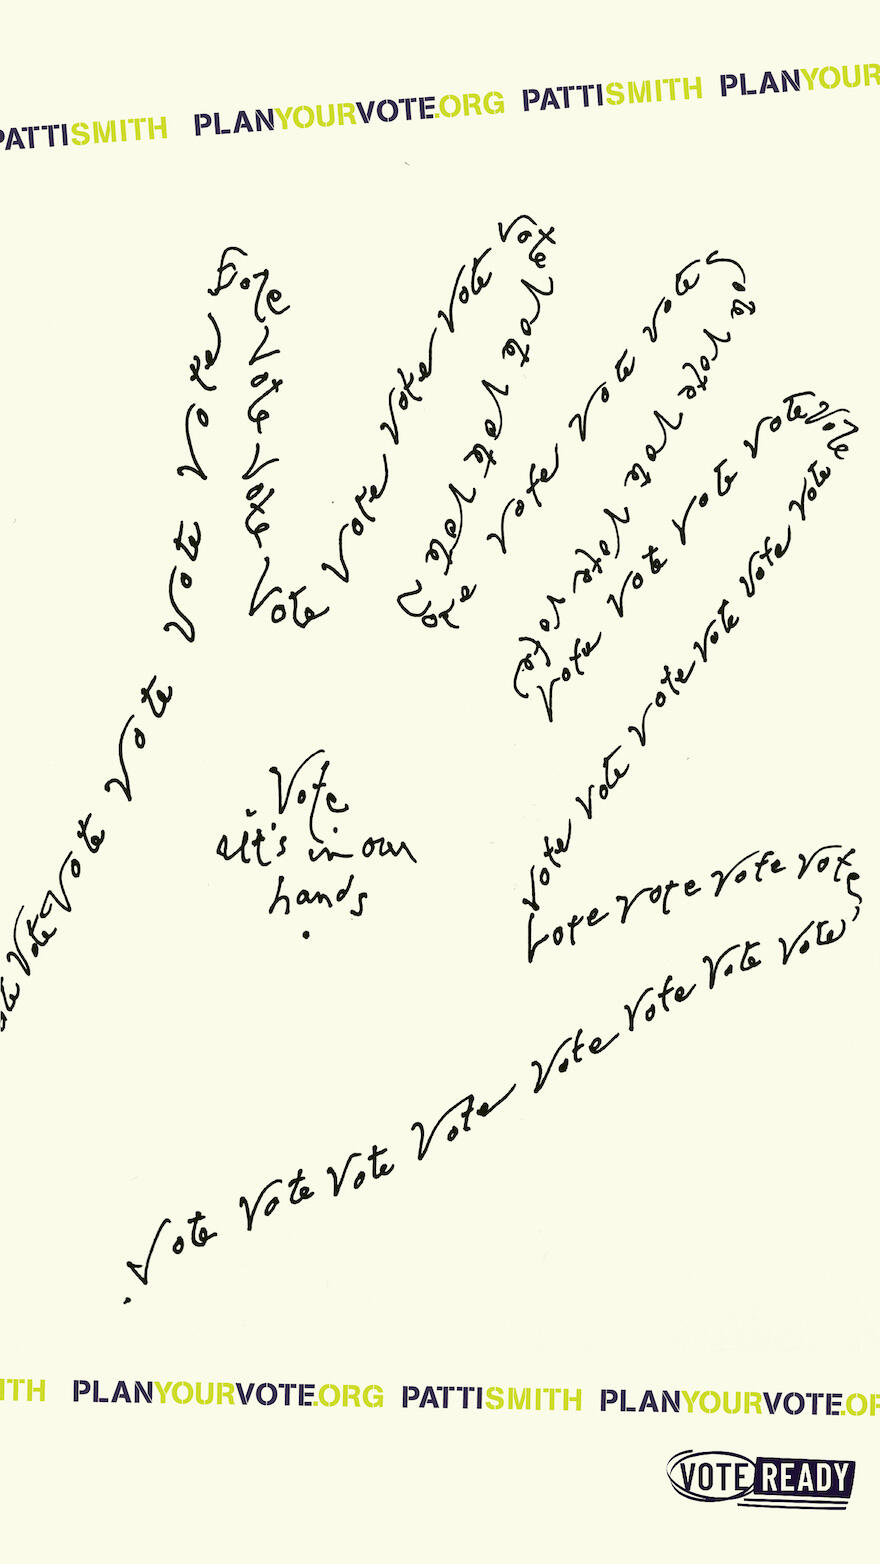 PATTISMITH PLANYOURVOTE.ORG PATTISMITH PLANYOUR
ote Vote Vote Vote Vote Vote
Vote
Vote Vote Vote
Vote Vote Vote Vote
Vote Vote Vote Vote
Vote Vote Vote Vote
Vote Vote Vote Vote
Vote Vote Vote Vote Vote
Vote Vote Vote Vote Vote Vote
Vote Vote Vote Vote
Vote Vote Vote Vote Vote Vote Vote Vote
Vote
it's in our
hands
.
ITH PLANYOURVOTE.ORG PATTISMITH PLANYOURVOTE.OR
VOTE READY